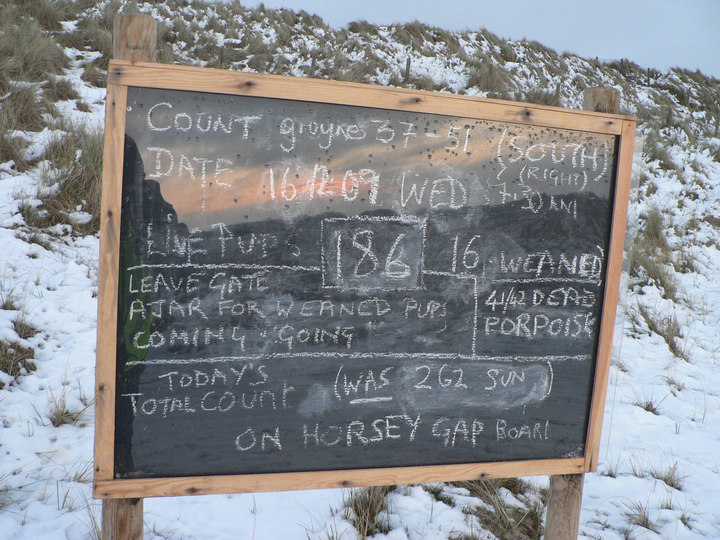 COUNT groynes 37-51 (SOUTH)
(RIGHT)
DATE 16.12.09 WED 7.30 AM
LIVE PUPS 186 16 WEANED
LEAVE GATE
AJAR FOR WEANED PUPS
COMING "GOING"
41/42 DEAD
PORPOISE
TODAY'S
TOTAL COUNT
(WAS 262 SUN)
ON HORSEY GAP BOARD